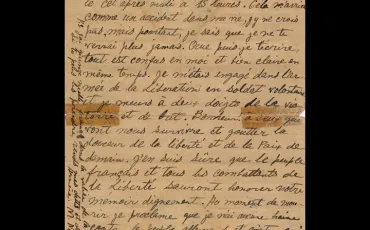 cet après midi à 15 heures. Cela m'arrive
comme un accident dans ma vie, j'y ne crois
pas, mais pourtant, je sais que je ne te
verrai plus jamais. Que puis-je t'écrire,
tout est confus en moi et bien claire en
même temps. Je m'étais engagé dans l'ar-
mée de la Libération en soldat volontaire
et je meurs à deux doigts de la vic-
toire et de but. Bonheur! à ceux qui
vont nous survivre et goutter la
douceur de la liberté et de la Paix de
demain. J'en suis sûre que le peuple
français et tous les combattants de
la Liberté sauront honorer notre
memoir dignement. Au moment de mou-
rir je proclame que je n'ai aucune haine
contre le peuple allemand et